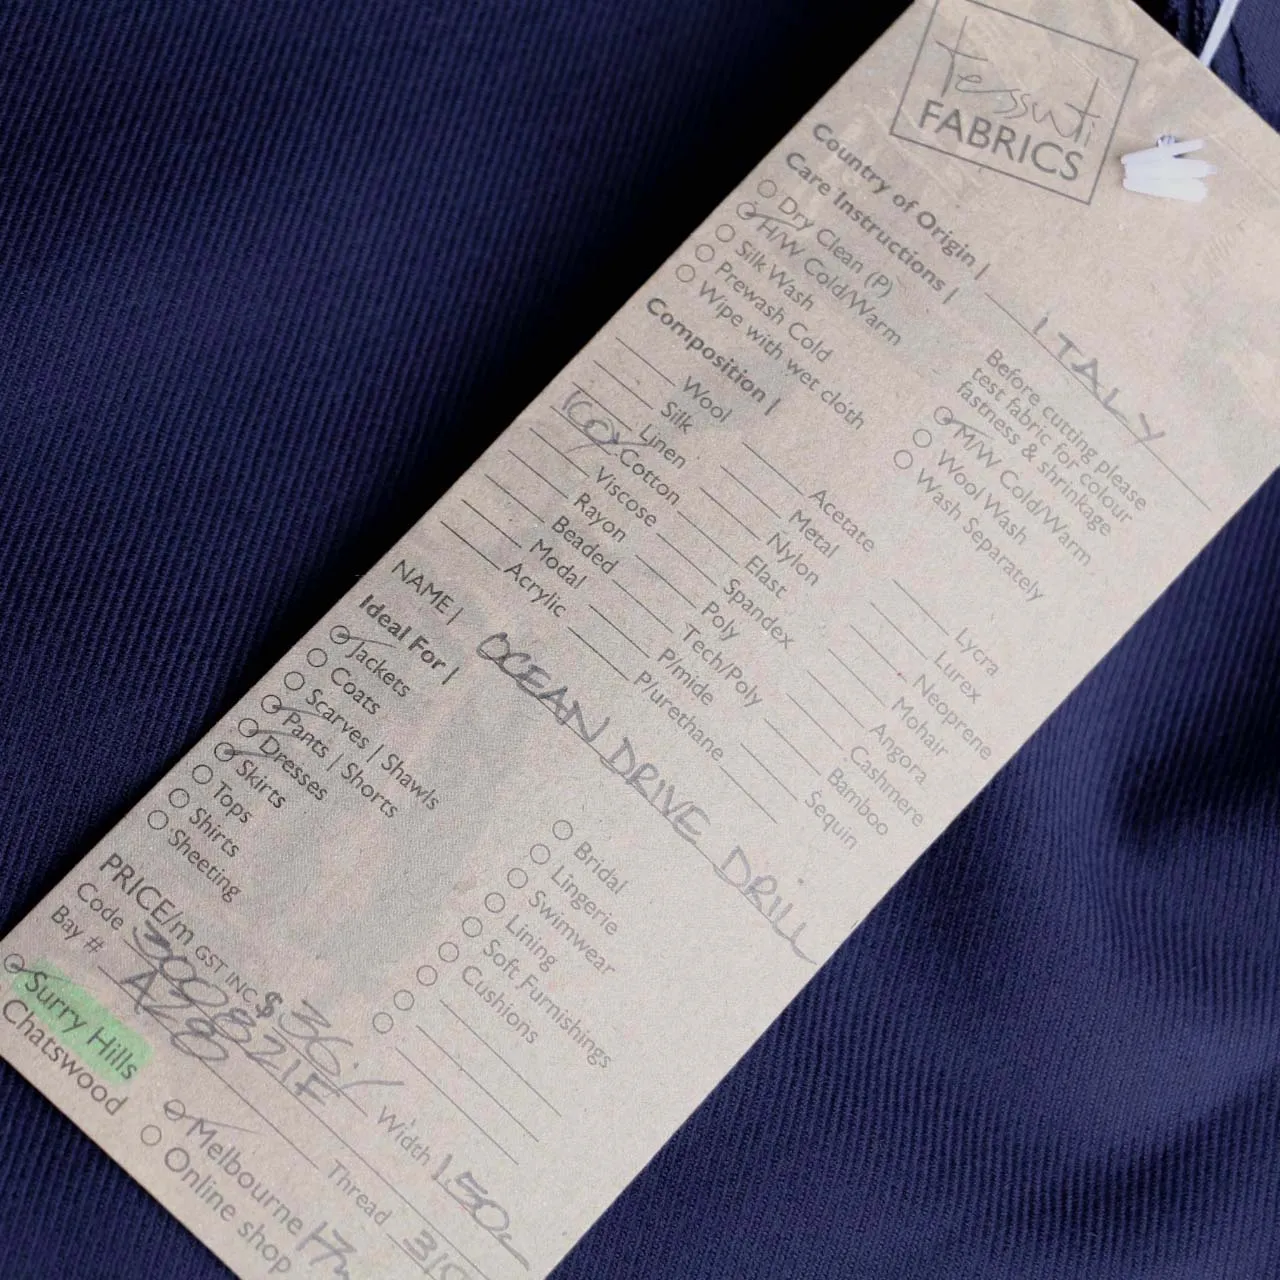 Tessuti
FABRICS
Country of Origin | ITALY
Care Instructions |
Dry Clean (P)
H/W Cold/Warm
Silk Wash
Prewash Cold
Wipe with wet cloth
Before cutting please
test fabric for colour
fastness & shrinkage
M/W Cold/Warm
Wool Wash
Wash Separately
Composition |
Wool
Silk
Linen
100% Cotton
Viscose
Rayon
Beaded
Modal
Acrylic
Acetate
Metal
Nylon
Elast
Spandex
Poly
Tech/Poly
P/mide
P/urethane
Lycra
Lurex
Neoprene
Mohair
Angora
Cashmere
Bamboo
Sequin
NAME | OCEAN DRIVE DRILL
Ideal For |
Jackets
Coats
Scarves | Shawls
Pants | Shorts
Dresses
Skirts
Tops
Shirts
Sheeting
Bridal
Lingerie
Swimwear
Lining
Soft Furnishings
Cushions
PRICE/m GST INC $ 36. Width 150
Code 300821F Thread
Bay # A28
Surry Hills
Chatswood
Melbourne
Online shop